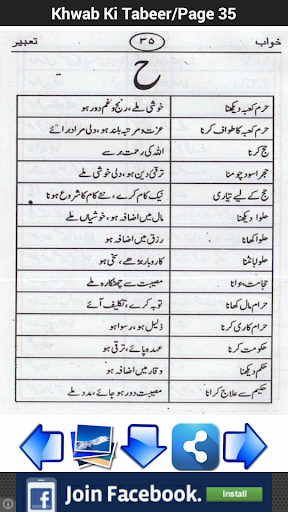 Khwab Ki Tabeer/Page 35
خواب ۳۵ تعبیر
ح
حرم کعبہ دیکھنا خوشی ملے، رنج و غم دور ہو
حرم کعبہ کا طواف کرنا عزت و مرتبہ بلند ہو، دلی مراد بر آئے
حج کرنا اللہ کی رحمت برسے
حجر اسود چومنا ترقی دین ہو، دلی خوشی ملے
حج کے لیے تیاری نیک کام کرے، نئے کام کا شروع ہونا
حلوا دیکھنا مال میں اضافہ ہو، خوشیاں ملے
حلوا کھانا رزق میں اضافہ ہو
حلوا بانٹنا کاروبار بڑھے، سخی ہو
حجامت بنوانا مصیبت سے چھٹکارہ ملے
حرام مال کھانا توبہ کرے، تکلیف آئے
حرام کاری کرنا ذلیل ہو، رسوا ہو
حکومت کرنا عہدہ پائے، ترقی ہو
حکم دیکھنا وقار میں اضافہ ہو
حکیم سے علاج کرانا مصیبت دور ہو جائے، مدد ملے
Join Facebook. Install